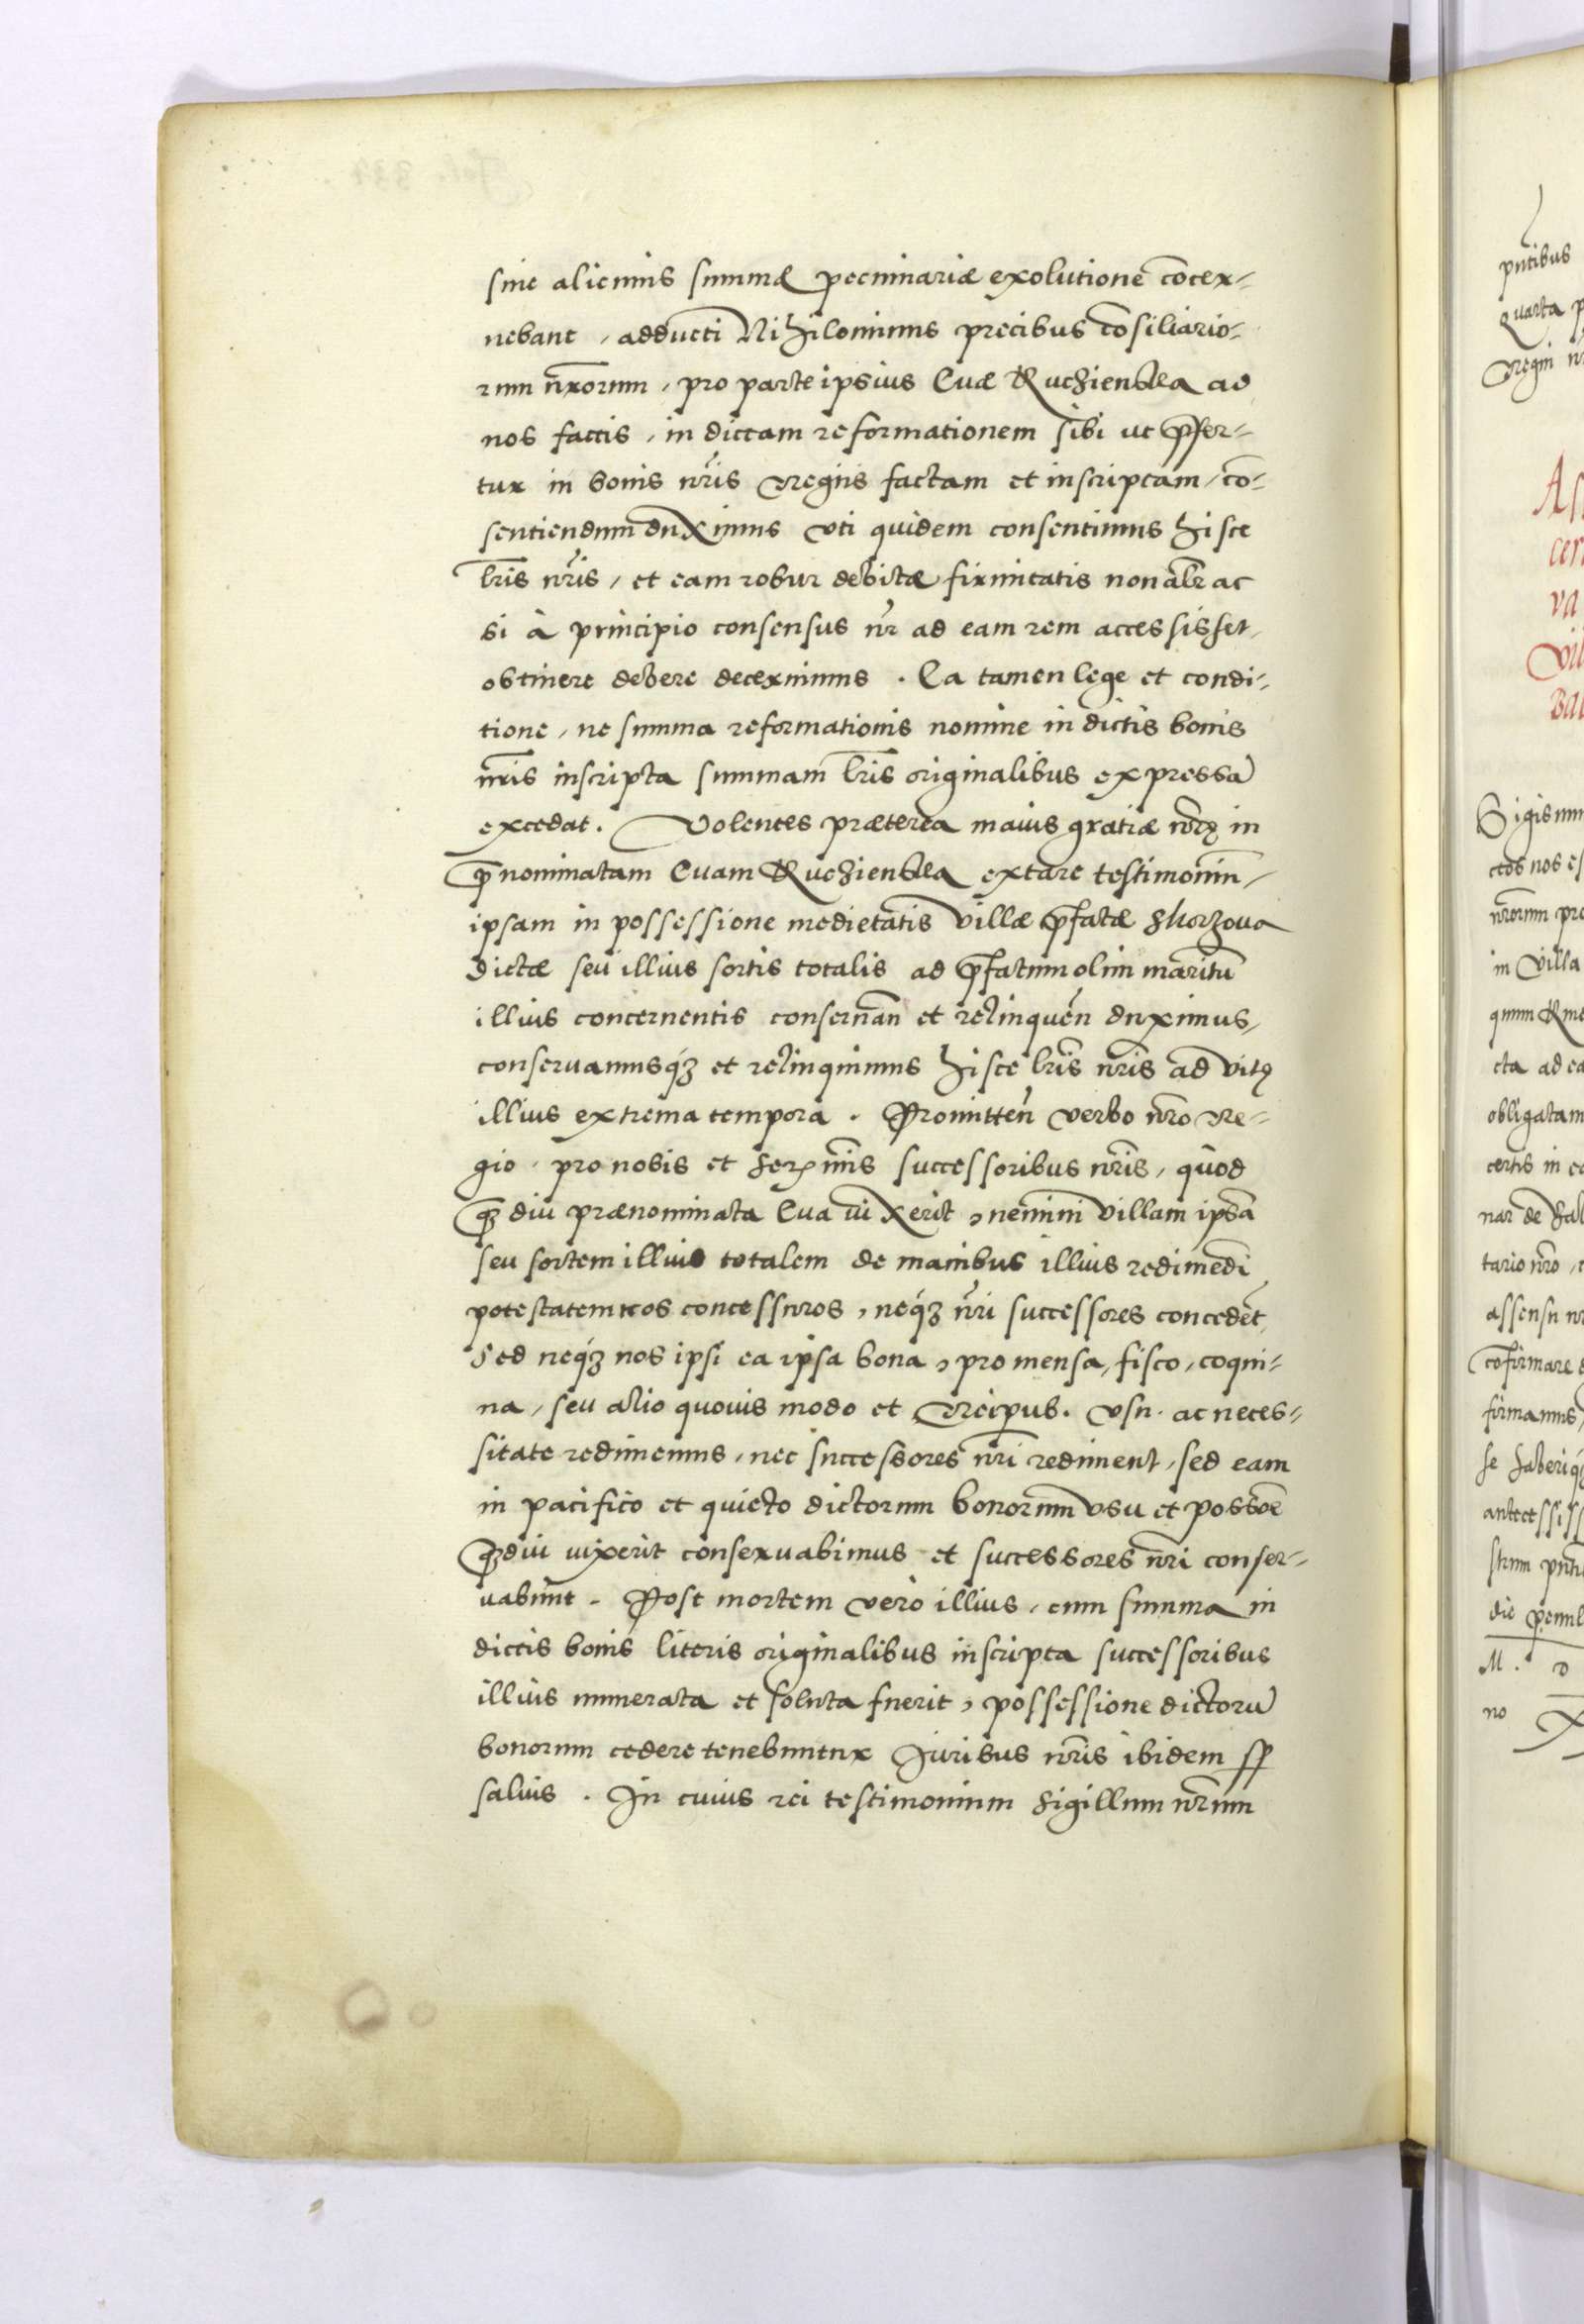 sine alicuius summæ pecuniariæ exolutione co͞cer-
nebant, adducti Nihilominus precibus co͞siliario-
rum n͞rorum, pro parte ipsius Euæ Ruchienska ad
nos factis, in dictam reformationem sibi ut p͞rfer-
tur in bonis n͞ris Regiis factam et inscriptam, co͞-
sentiendum duximus Vti quidem consentimus hisce
l͞ris n͞ris, et eam robur debitæ firmitatis non al͞r ac
si à principio consensus n͞r ad eam rem accessisset,
obtinere debere decernimus. Ea tamen lege et condi-
tione, ne summa reformationis nomine in dictis bonis
n͞ris inscripta summam l͞ris originalibus expressa͞
excedat. Volentes præterea maius gratiæ n͞rę in
p͞nominatam Euam Ruchienska extare testimoniu͞,
ipsam in possessione medietatis Villæ p͞rfatæ Skorzova
dictæ seu illius sortis totalis ad p͞rfatum olim maritu͞
illius concernentis conseruan͞ et relinquen͞ duximus,
conseruamusq́ꝫ et relinquimus hisce l͞ris n͞ris ad vitę
illius extrema tempora. Promitten͞ verbo n͞ro Re-
gio, pro nobis et Ser͞mis successoribus n͞ris, quod
q͞ꝫ diu prænominata Eua vixerit, nemini Villam ipsa͞
seu sortem illius totalem de manibus illius redimendi
potestatem nos concessuros, neq́ꝫ n͞ri successores concede͞t,
Sed neq́ꝫ nos ipsi ea ipsa bona, pro mensa, fisco, coqui-
na, seu alio quouis modo et Reipub. Vsu ac neces-
sitate redimemus, nec successores n͞ri rediment, sed eam
in pacifico et quieto dictorum bonorum vsu et posso͞e
q͞ꝫdiu vixerit conseruabimus et successores n͞ri conser-
uabunt. Post mortem vero illius, cum summa in
dictis bonis literis originalibus inscripta successoribus
illius numerata et soluta fuerit, possessione dictoru͞
bonorum cedere tenebuntur Iuribus n͞ris ibidem s͞p
saluis. In cuius rei testimonium Sigillum n͞rum